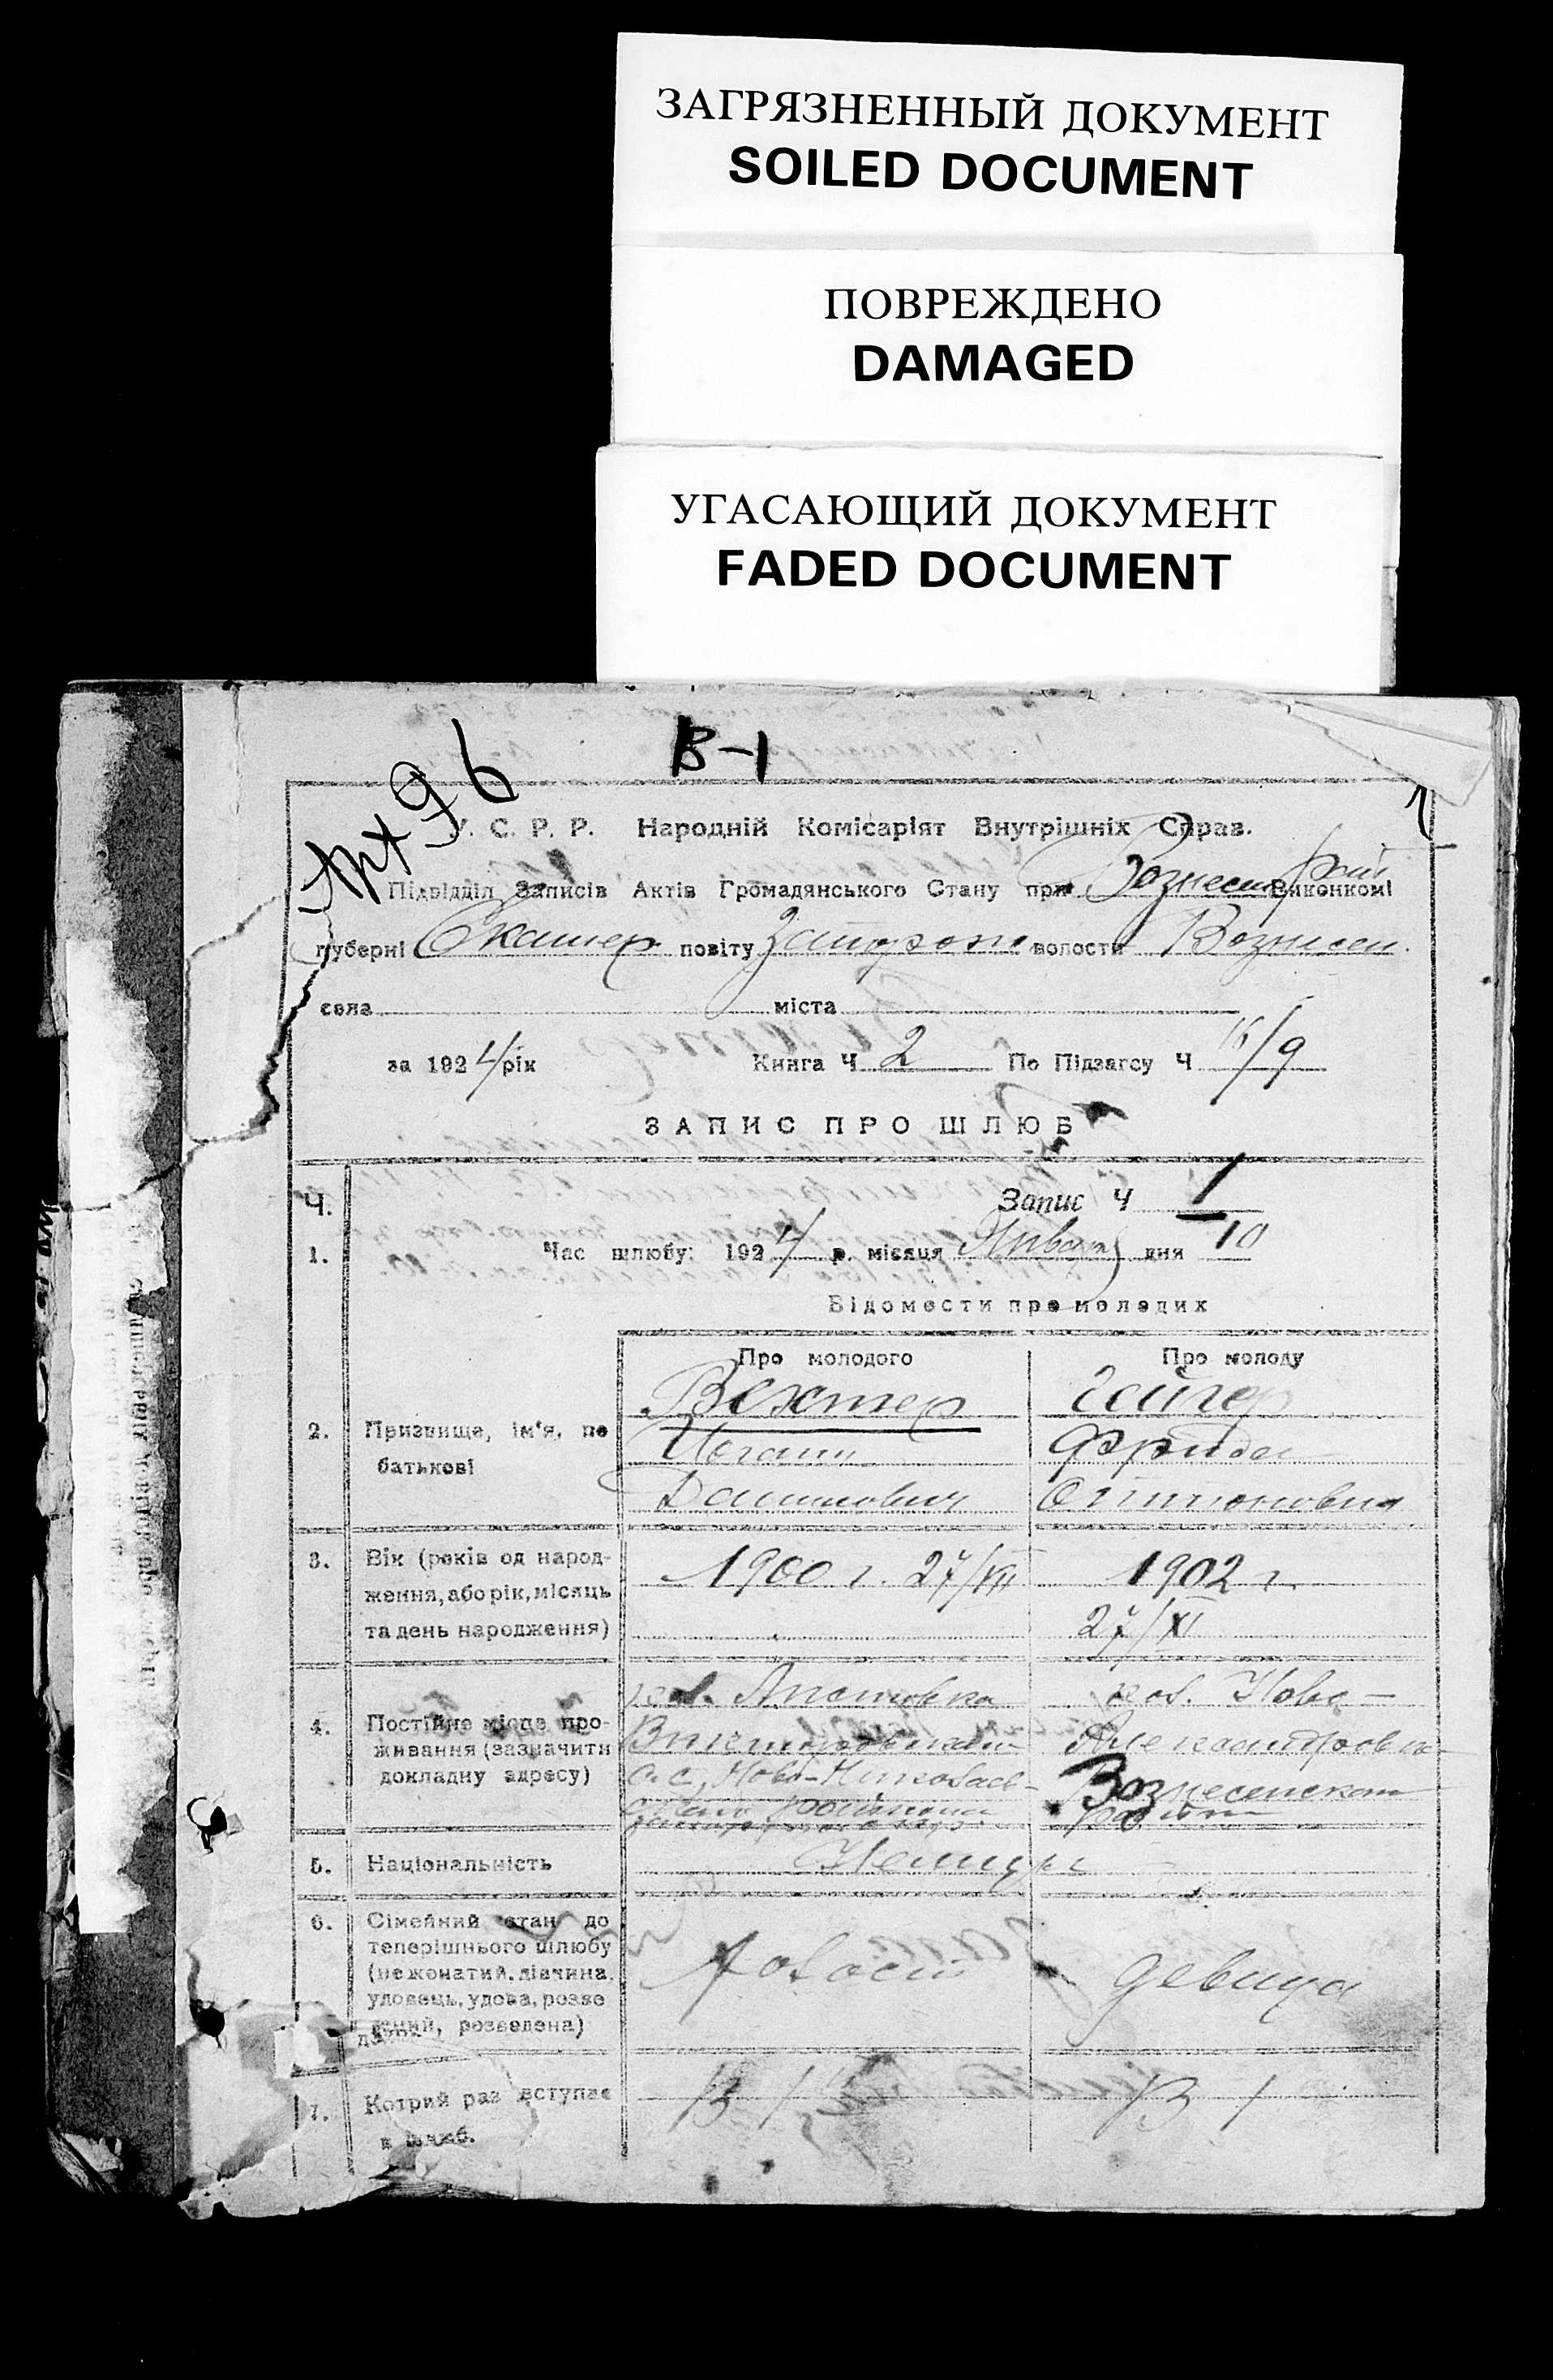 ЗАГРЯЗНЕННЫЙ ДОКУМЕНТ
SOILED DOCUMENT
ПОВРЕЖДЕНО
DAMAGED
УГАСАЮЩИЙ ДОКУМЕНТ
FADED DOCUMENT
В-1
Арх 96
У. С. Р. Р. Народній Комісаріят Внутрішніх Справ.
Підвідділ Записів Актів Громадянського Стану при Виконкомі
губерні Екатер повіту Запорож волости Вознесен.
села міста
за 1924 рік Книга Ч 2 По Підзагсу Ч /9
ЗАПИС ПРО ШЛЮБ
Ч. Запис Ч 1
1. Час шлюбу: 1924 р. місяця Января дня 10
Відомости про молодих
Про молодого Про молоду
2. Призвище, ім'я, по батькові
Вехтер Гейгер
Иоганн Фрида
Данилович
3. Вік (років од народження, або рік, місяць та день народження)
1900 г. 27/VII 1902 г.
27/XI
4. Постійне місце проживання (зазначити докладну адресу)
кол. кол. Ново-
Александровка
с.с. Ново-Николаев- Вознесенского
района
5. Національність Немцы
6. Сімейний стан до теперішнього шлюбу (нежонатий, дівчина, удовець, удова, розведений, розведена)
Холост девица
7. Котрий раз вступає в шлюб.
В 1 В 1